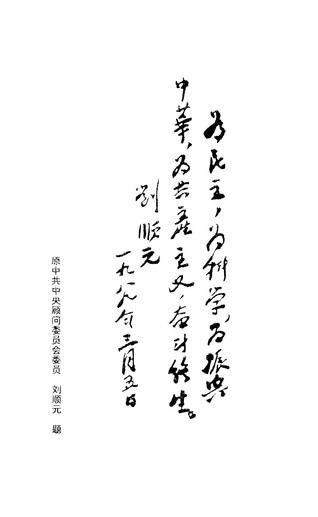 为民主，为科学，为振兴
中华，为共产主义，奋斗终生。
刘顺元
一九八九年三月五日
原中共中央顾问委员会委员　刘顺元　题